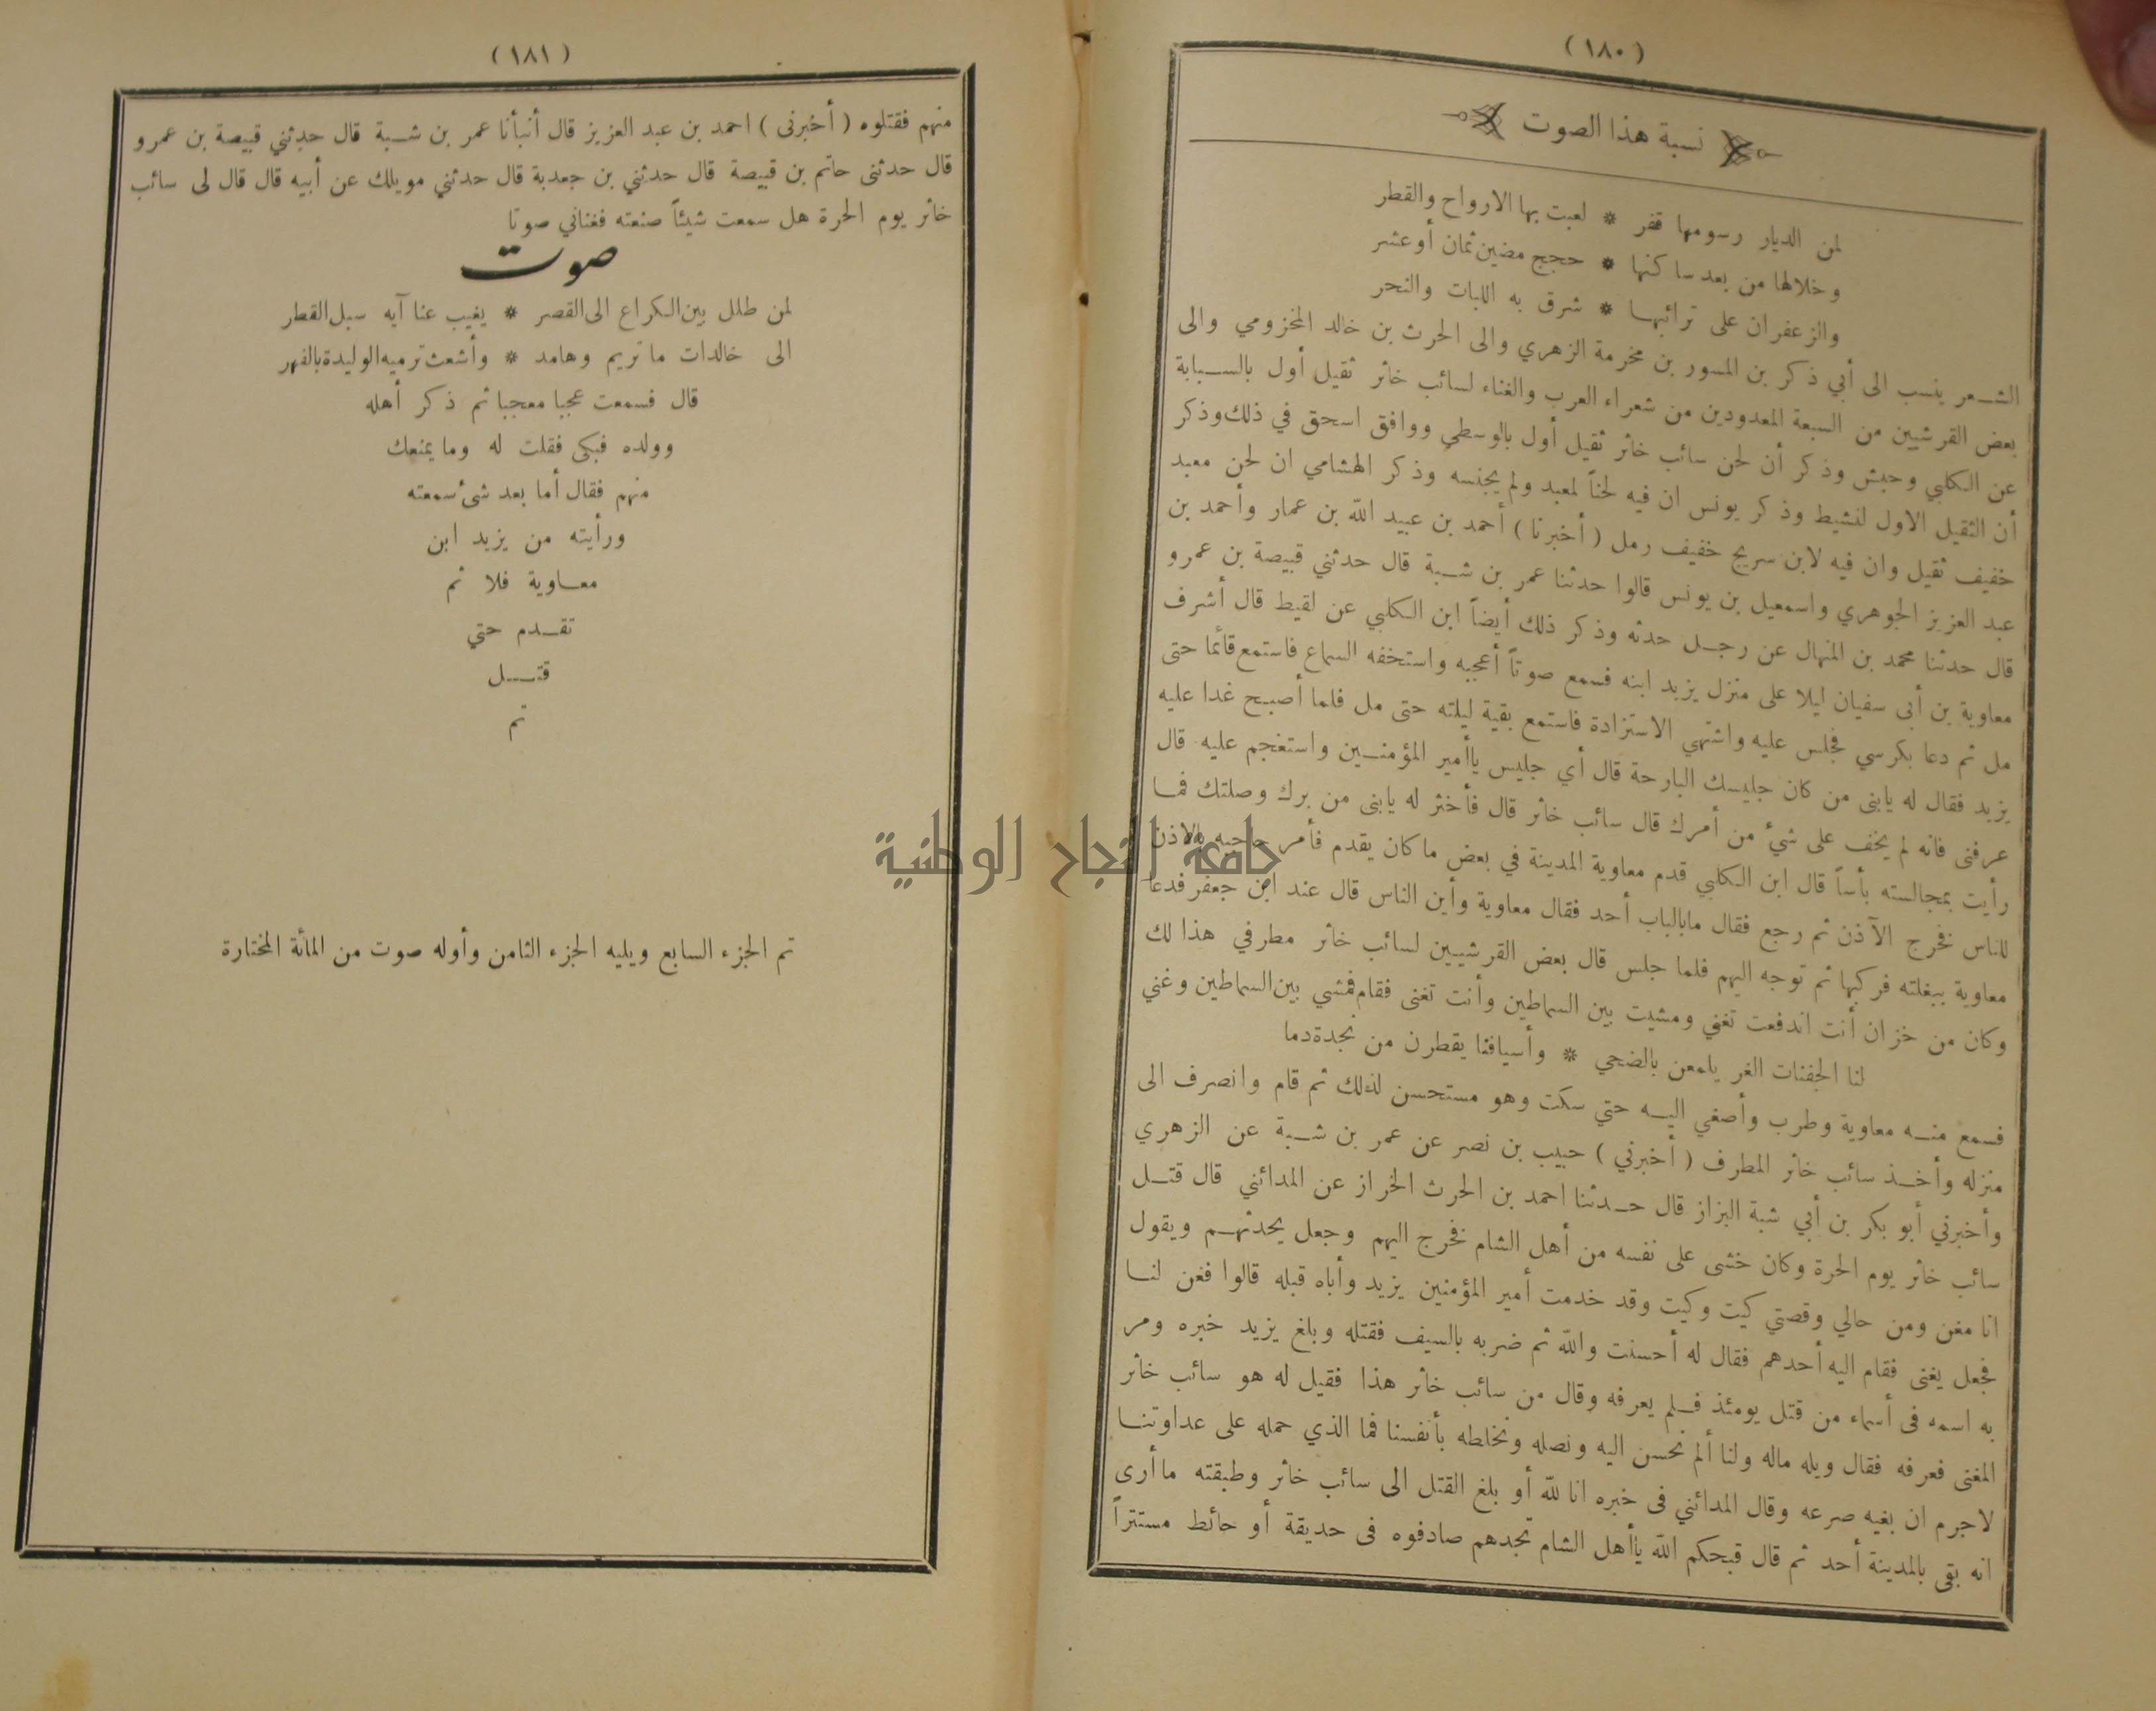 (١٨٠)
نسبة هذا الصوت
لمن الديار رسومها قفر * لعبت بها الارواح والقطر
وخلالها من بعد ساكنها * حجج مضين ثمان أو عشر
والزعفران على ترائبها * شرق به اللبات والنحر
الشعر ينسب الى أبي ذكر بن المسور بن مخرمة الزهري والى الحرث بن خالد المخزومي والى
بعض القرشيين من السبعة المعدودين من شعراء العرب والغناء لسائب خاثر ثقيل أول بالسبابة
عن الكلبي وحبش وذكر أن لحن سائب خاثر ثقيل أول بالوسطي ووافق اسحق في ذلك وذكر
أن الثقيل الاول لنشيط وذكر يونس ان فيه لحناً لمعبد ولم يجنسه وذكر الهشامي ان لحن معبد
خفيف ثقيل وان فيه لابن سريج خفيف رمل (أخبرنا) أحمد بن عبيد الله بن عمار وأحمد بن
عبد العزيز الجوهري واسمعيل بن يونس قالوا حدثنا عمر بن شبة قال حدثني قبيصة بن عمرو
قال حدثنا محمد بن المنهال عن رجل حدثه وذكر ذلك أيضاً ابن الكلبي عن لقيط قال أشرف
معاوية بن أبى سفيان ليلا على منزل يزيد ابنه فسمع صوتاً أعجبه واستخفه السماع فاستمع قائما حتى
مل ثم دعا بكرسي فجلس عليه واشتهي الاستزادة فاستمع بقية ليلته حتى مل فلما أصبح غدا عليه
يزيد فقال له يابنى من كان جليسك البارحة قال أي جليس ياأمير المؤمنين واستعجم عليه قال
عرفنى فانه لم يخف على شئ من أمرك قال سائب خاثر قال فأخثر له يابنى من برك وصلتك فما
رأيت بمجالسته بأساً قال ابن الكلبي قدم معاوية المدينة في بعض ماكان يقدم فأمر حاجبه بالاذن
للناس فخرج الآذن ثم رجع فقال مابالباب أحد فقال معاوية وأين الناس قال عند ابن جعفر فدعا
معاوية ببغلته فركبها ثم توجه اليهم فلما جلس قال بعض القرشيين لسائب خاثر مطرفي هذا لك
وكان من خز ان أنت اندفعت تغني ومشيت بين السماطين وأنت تغنى فقام فمشي بين السماطين وغني
لنا الجفنات الغر يلمعن بالضحي * وأسيافنا يقطرن من نجدة دما
فسمع منه معاوية وطرب وأصغي اليه حتي سكت وهو مستحسن لذلك ثم قام وانصرف الى
منزله وأخذ سائب خاثر المطرف (أخبرني) حبيب بن نصر عن عمر بن شبة عن الزهري
وأخبرني أبو بكر بن أبي شبة البزاز قال حدثنا احمد بن الحرث الخراز عن المدائني قال قتل
سائب خاثر يوم الحرة وكان خشى على نفسه من أهل الشام فخرج اليهم وجعل يحدثهم ويقول
انا مغن ومن حالي وقصتي كيت وكيت وقد خدمت أمير المؤمنين يزيد وأباه قبله قالوا فغن لنا
فجعل يغنى فقام اليه أحدهم فقال له أحسنت والله ثم ضربه بالسيف فقتله وبلغ يزيد خبره ومر
به اسمه فى أسماء من قتل يومئذ فلم يعرفه وقال من سائب خاثر هذا فقيل له هو سائب خاثر
المغنى فعرفه فقال ويله ماله ولنا ألم نحسن اليه ونصله ونخلطه بأنفسنا فما الذي حمله على عداوتنا
لاجرم ان بغيه صرعه وقال المدائني فى خبره انا لله أو بلغ القتل الى سائب خاثر وطبقته ماأرى
انه بقى بالمدينة أحد ثم قال قبحكم الله ياأهل الشام تجدهم صادفوه فى حديقة أو حائط مستتراً
(١٨١)
منهم فقتلوه (أخبرنى) احمد بن عبد العزيز قال أنبأنا عمر بن شبة قال حدثني قبيصة بن عمرو
قال حدثنى حاتم بن قبيصة قال حدثني بن جعدبة قال حدثني مويلك عن أبيه قال قال لى سائب
خاثر يوم الحرة هل سمعت شيئاً صنعته فغناني صوتا
صوت
لمن طلل بين الكراع الى القصر * يغيب عنا آيه سبل القطر
الى خالدات ما تريم وهامد * وأشعث ترميه الوليدة بالفهر
قال فسمعت عجبا معجبا ثم ذكر أهله
وولده فبكى فقلت له وما يمنعك
منهم فقال أما بعد شئ سمعته
ورأيته من يزيد ابن
معاوية فلا ثم
تقدم حتي
قتل
تم
تم الجزء السابع ويليه الجزء الثامن وأوله صوت من المائة المختارة
جامعة النجاح الوطنية